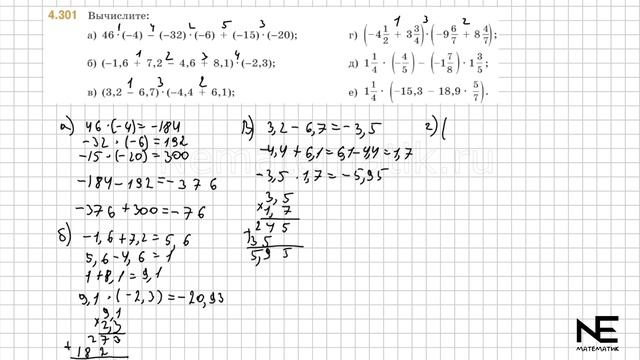 4.301 Вычислите:
а) 46 · (−4) − (−32) · (−6) + (−15) · (−20);
б) (−1,6 + 7,2 − 4,6 + 8,1) · (−2,3);
в) (3,2 − 6,7) · (−4,4 + 6,1);
г) (−4 1/2 + 3 3/4) · (−9 6/7 + 8 4/7);
д) 1 1/4 · (4/5) − (−1 7/8) · 1 3/5;
е) 1 1/4 · (−15,3 − 18,9 · 5/7).
а) 46 · (−4) = −184
−32 · (−6) = 192
−15 · (−20) = 300
−184 − 192 = −376
−376 + 300 = −76
б) −1,6 + 7,2 = 5,6
5,6 − 4,6 = 1
1 + 8,1 = 9,1
9,1 · (−2,3) = −20,93
9,1
× 2,3
273
+ 182
в) 3,2 − 6,7 = −3,5
−4,4 + 6,1 = 6,1 − 4,4 = 1,7
−3,5 · 1,7 = −5,95
3,5
× 1,7
245
+ 35
5,95
г) (
NE
МАТЕМАТИК